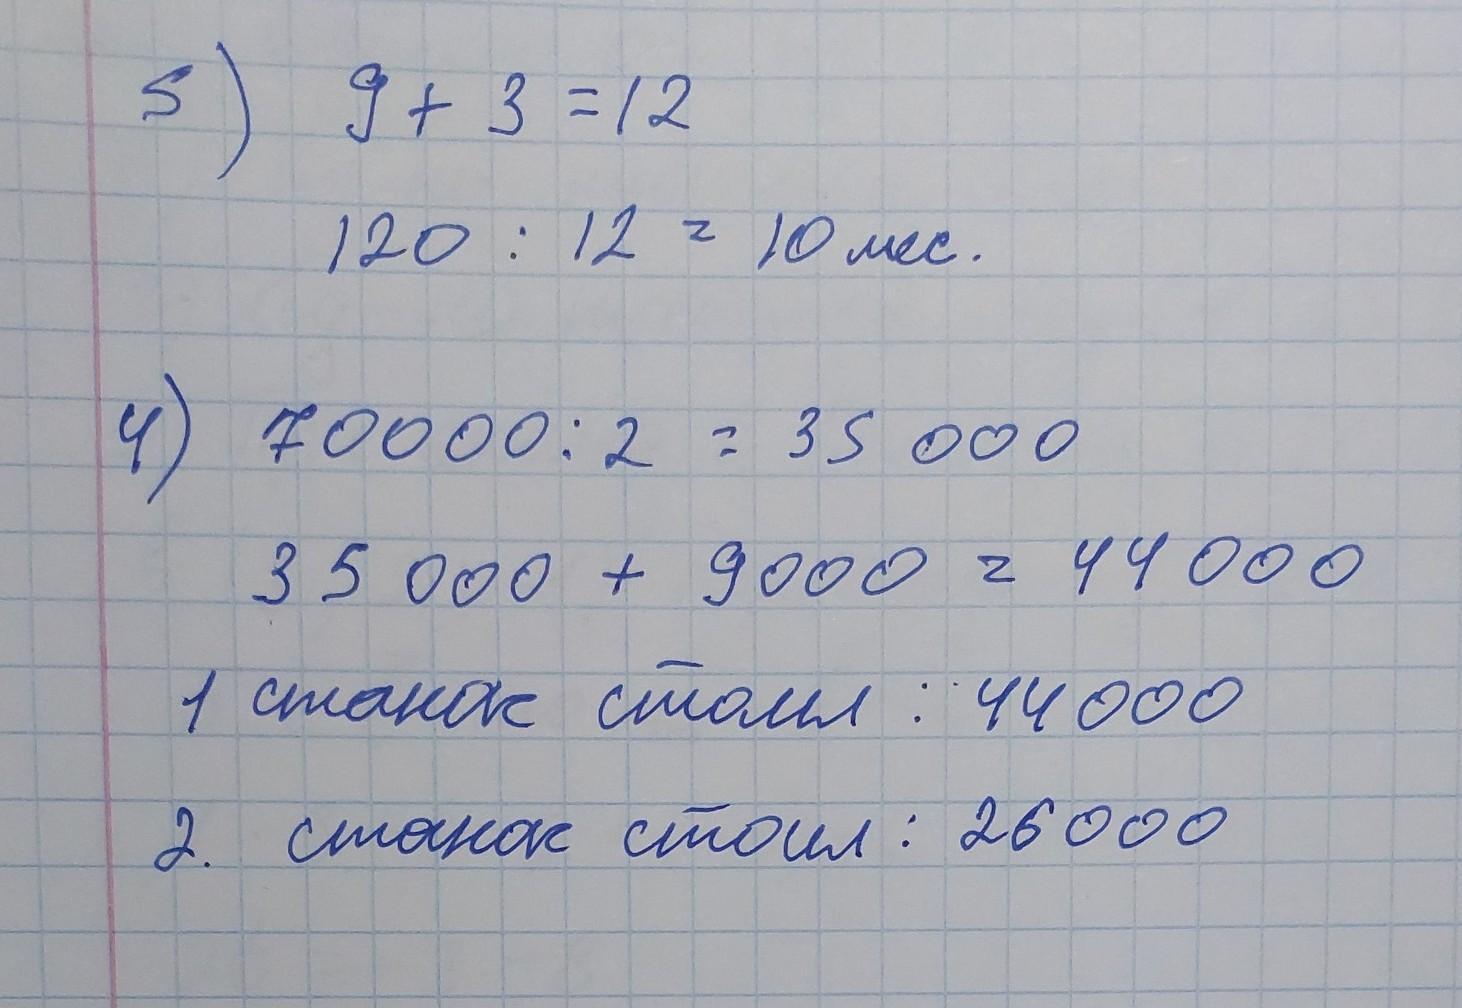 5) 9 + 3 = 12
120 : 12 = 10 мес.
4) 70000 : 2 = 35 000
35 000 + 9000 = 44 000
1 станок стоил : 44000
2. станок стоил : 26000